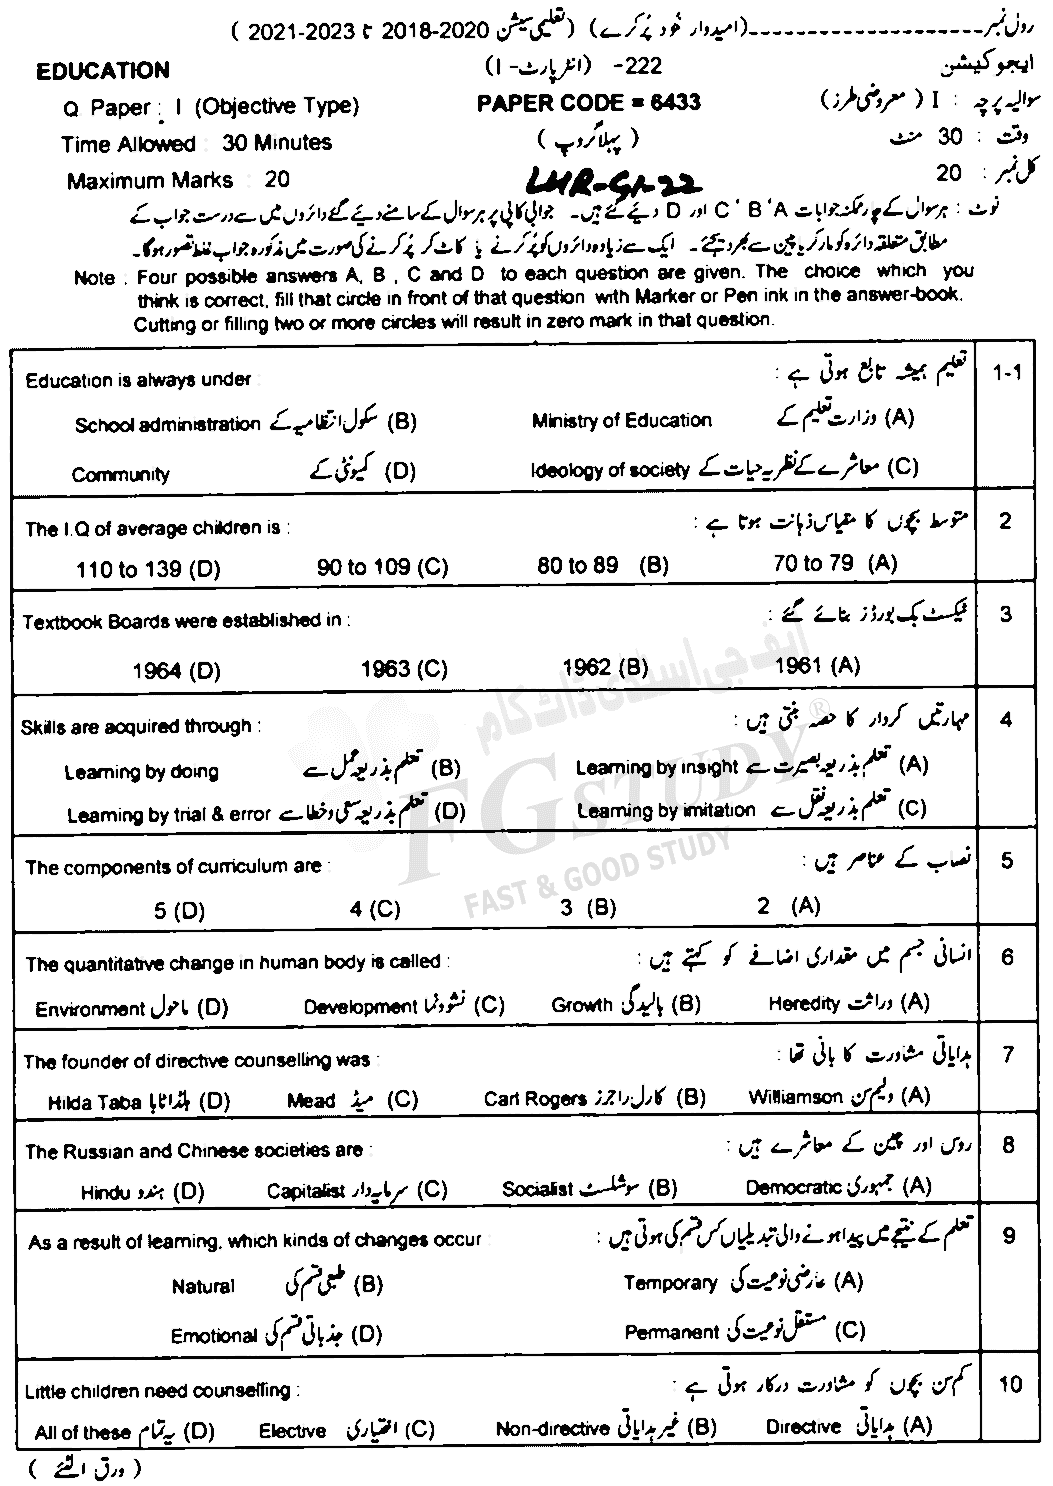 رولنمبر---------------------(امیدوار خود پُر کرے) (تعلیمی سیشن 2020-2018 تا 2023-2021 )
ایجوکیشن 222- (انٹر پارٹ-I) EDUCATION
سوالیہ پرچہ : I ( معروضی طرز) PAPER CODE = 6433 Q Paper : I (Objective Type)
وقت : 30 منٹ ( پہلا گروپ ) Time Allowed : 30 Minutes
کل نمبر : 20 LHR-G1-22 Maximum Marks : 20
نوٹ : ہر سوال کے چار ممکنہ جوابات A ' B ' C اور D دیئے گئے ہیں۔ جوابی کاپی پر ہر سوال کے سامنے دیئے گئے دائروں میں سے درست جواب کے
مطابق متعلقہ دائرہ کو مارکر یا پین سے بھر دیجئے۔ ایک سے زیادہ دائروں کو پُر کرنے یا کاٹ کر پُر کرنے کی صورت میں مذکورہ جواب غلط تصور ہوگا۔
Note : Four possible answers A, B , C and D to each question are given. The choice which you
think is correct, fill that circle in front of that question with Marker or Pen ink in the answer-book.
Cutting or filling two or more circles will result in zero mark in that question.
1-1 تعلیم ہمیشہ تابع ہوتی ہے : Education is always under :
(A) وزارت تعلیم کے Ministry of Education (B) سکول انتظامیہ کے School administration
(C) معاشرے کے نظریہ حیات کے Ideology of society (D) کمیونٹی کے Community
2 متوسط بچوں کا مقیاس ذہانت ہوتا ہے : The I.Q of average children is :
(A) 70 to 79 (B) 80 to 89 (C) 90 to 109 (D) 110 to 139
3 ٹیکسٹ بک بورڈز بنائے گئے : Textbook Boards were established in :
(A) 1961 (B) 1962 (C) 1963 (D) 1964
4 مہارتیں کردار کا حصہ بنتی ہیں : Skills are acquired through :
(A) تعلم بذریعہ بصیرت سے Learning by insight (B) تعلم بذریعہ عمل سے Learning by doing
(C) تعلم بذریعہ نقل سے Learning by imitation (D) تعلم بذریعہ سعی و خطا سے Learning by trial & error
5 نصاب کے عناصر ہیں : The components of curriculum are :
(A) 2 (B) 3 (C) 4 (D) 5
6 انسانی جسم میں مقداری اضافے کو کہتے ہیں : The quantitative change in human body is called :
(A) وراثت Heredity (B) بالیدگی Growth (C) نشوونما Development (D) ماحول Environment
7 ہدایاتی مشاورت کا بانی تھا : The founder of directive counselling was :
(A) ولیم سن Williamson (B) کارل راجرز Carl Rogers (C) میڈ Mead (D) ہلڈا ٹابا Hilda Taba
8 روس اور چین کے معاشرے ہیں : The Russian and Chinese societies are :
(A) جمہوری Democratic (B) سوشلسٹ Socialist (C) سرمایہ دار Capitalist (D) ہندو Hindu
9 تعلم کے نتیجے میں پیدا ہونے والی تبدیلیاں کس قسم کی ہوتی ہیں : As a result of learning, which kinds of changes occur :
(A) عارضی نوعیت کی Temporary (B) طبعی قسم کی Natural
(C) مستقل نوعیت کی Permanent (D) جذباتی قسم کی Emotional
10 کم سن بچوں کو مشاورت درکار ہوتی ہے : Little children need counselling :
(A) ہدایاتی Directive (B) غیر ہدایاتی Non-directive (C) اختیاری Elective (D) یہ تمام All of these
( ورق الٹئے )
ایف جی اسٹڈی ڈاٹ کام
FG STUDY ®
FAST & GOOD STUDY